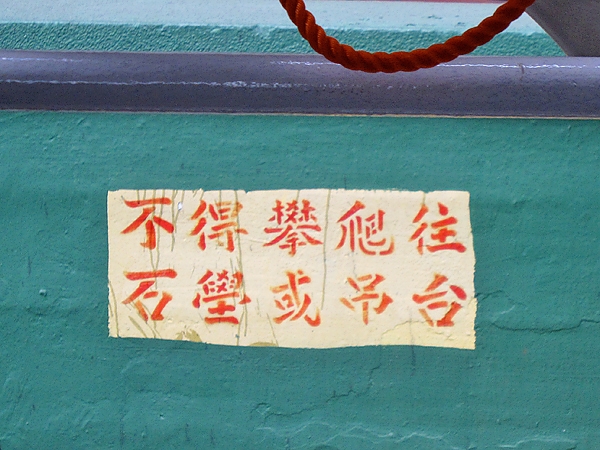 不得攀爬往
石壆或吊台